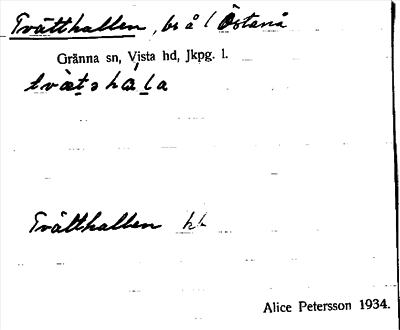 Tvätthallen, bs å l Östanå
Gränna sn, Vista hd, Jkpg. l.
Tvätthallen
Alice Petersson 1934.